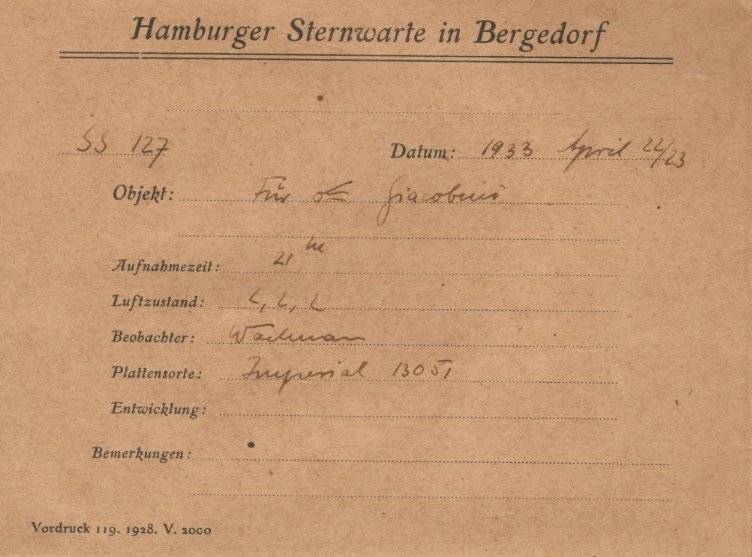 Hamburger Sternwarte in Bergedorf
SS 127 Datum: 1933 April 22/23
Objekt: Für Giacobini
Aufnahmezeit: 21 m
Luftzustand: 2, 2, 2
Beobachter: Wachmann
Plattensorte: Imperial 13051
Entwicklung:
Bemerkungen:
Vordruck 119. 1928. V. 2000